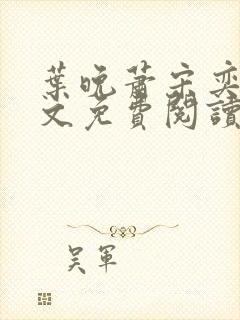 葉晚蕭宋奕
文免費閱讀
吳軍